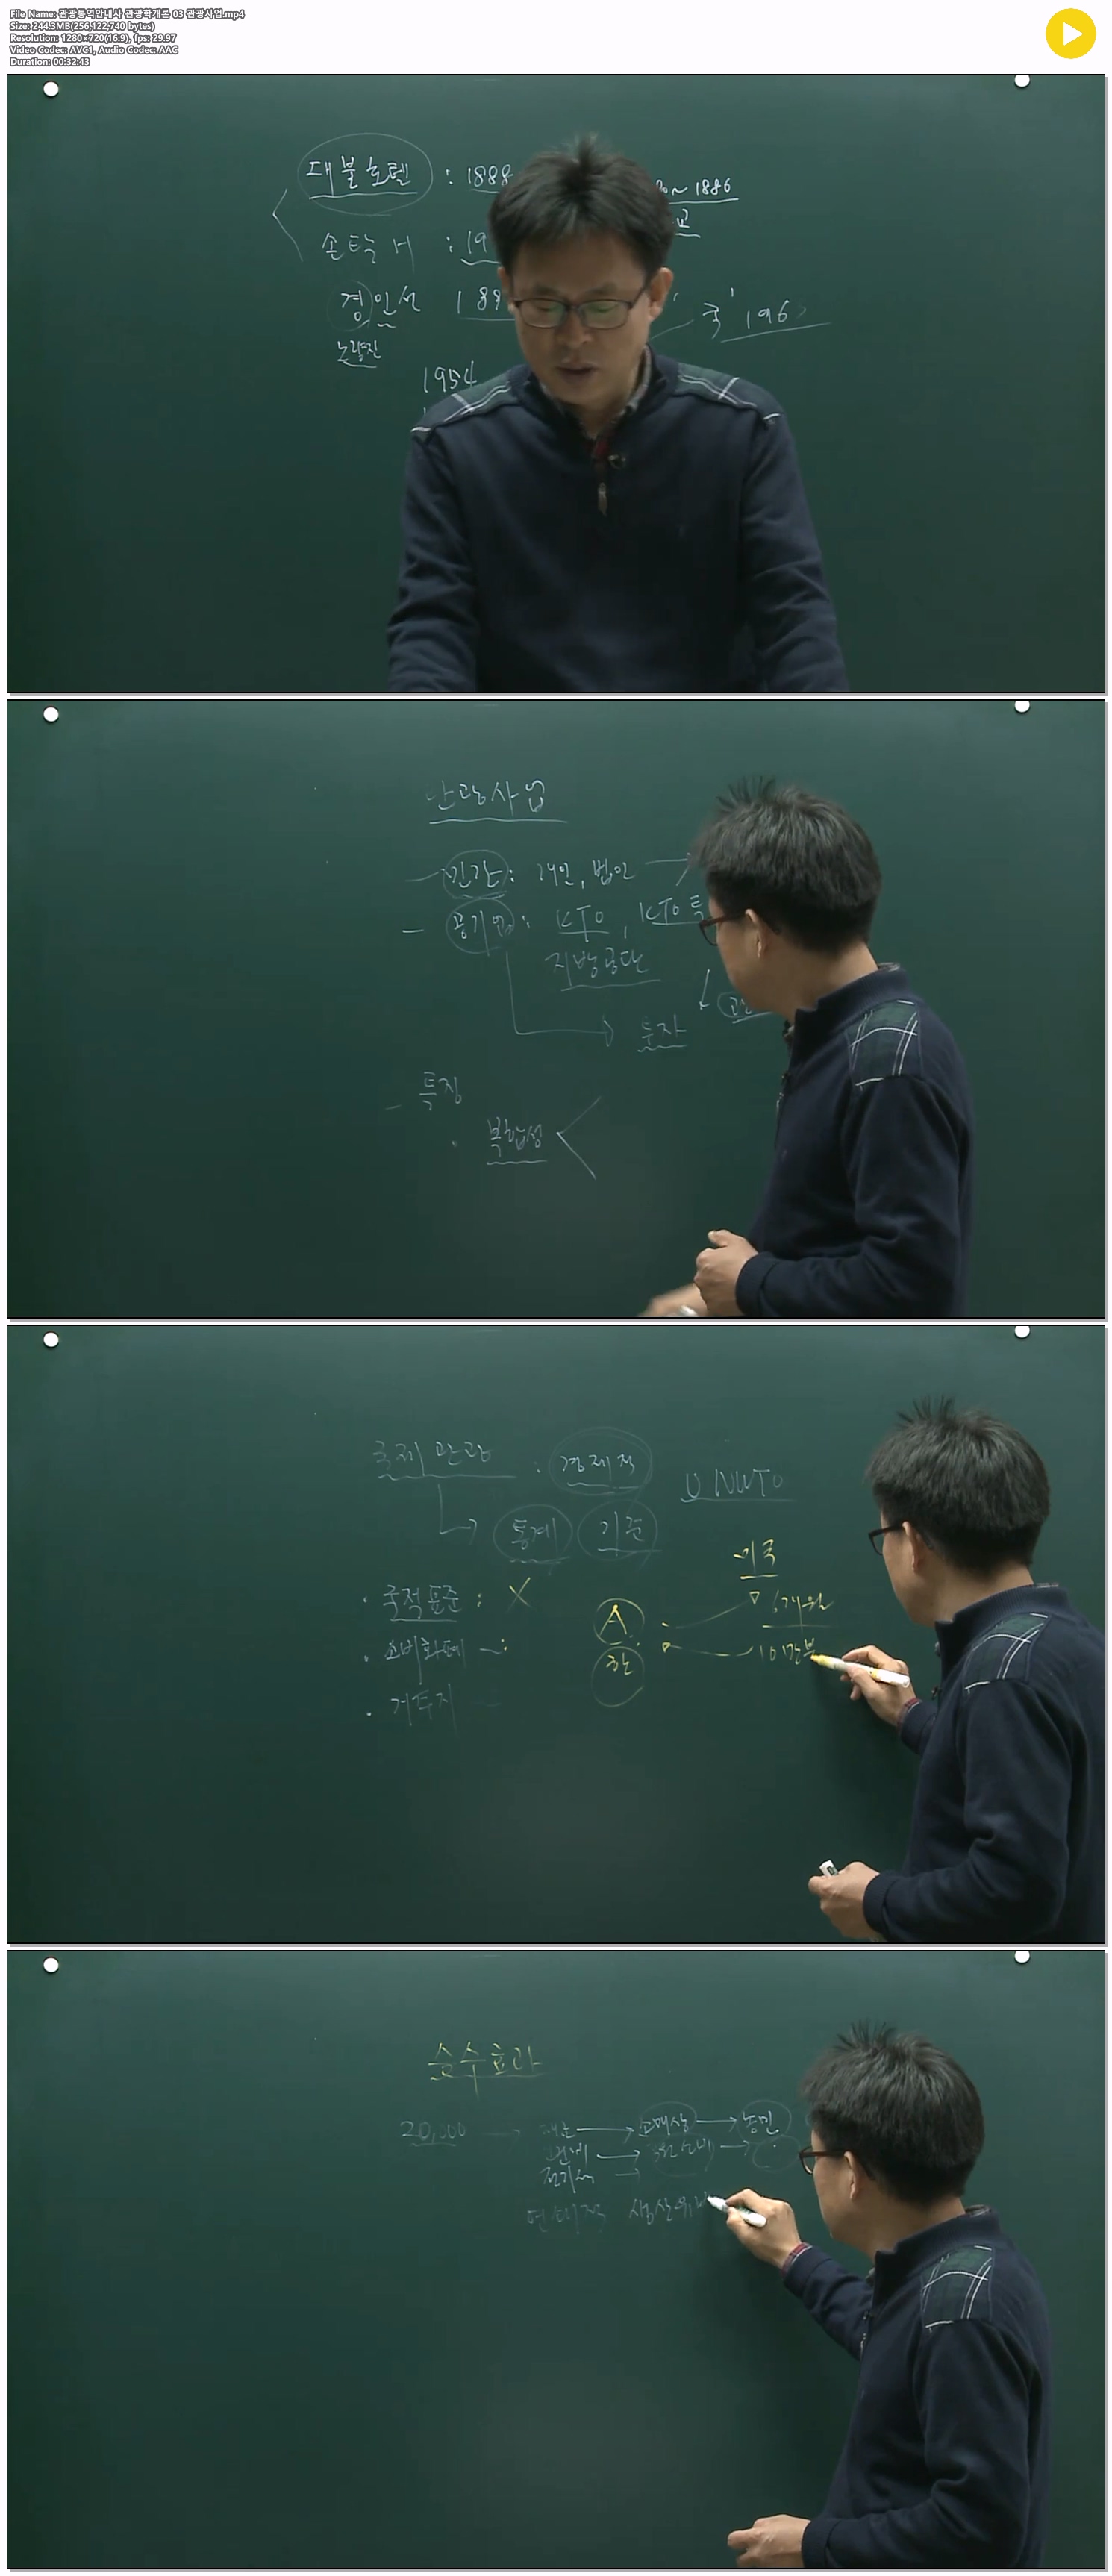 File Name: 관광통역안내사 관광학개론 03 관광사업.mp4
Size: 244.3MB(256,122,740 bytes)
Resolution: 1280×720(16:9), fps: 29.97
Video Codec: AVC1, Audio Codec: AAC
Duration: 00:32:43
대불호텔 : 1888 ~ 1886
손탁 H : 19 교
경인선 189 국 196
노량진
1954
관광사업
- 민간 : 개인, 법인
- 공기업 : KTO, KTO
지방공단
투자
- 특징
· 복합성
국제관광 : 경제적 UNWTO
통계 기준
미국
· 국적표준 : X A 6개월
· 소비화폐 - : 한 10만불
· 거주지
승수효과
20,000 소매상 농민
전기세